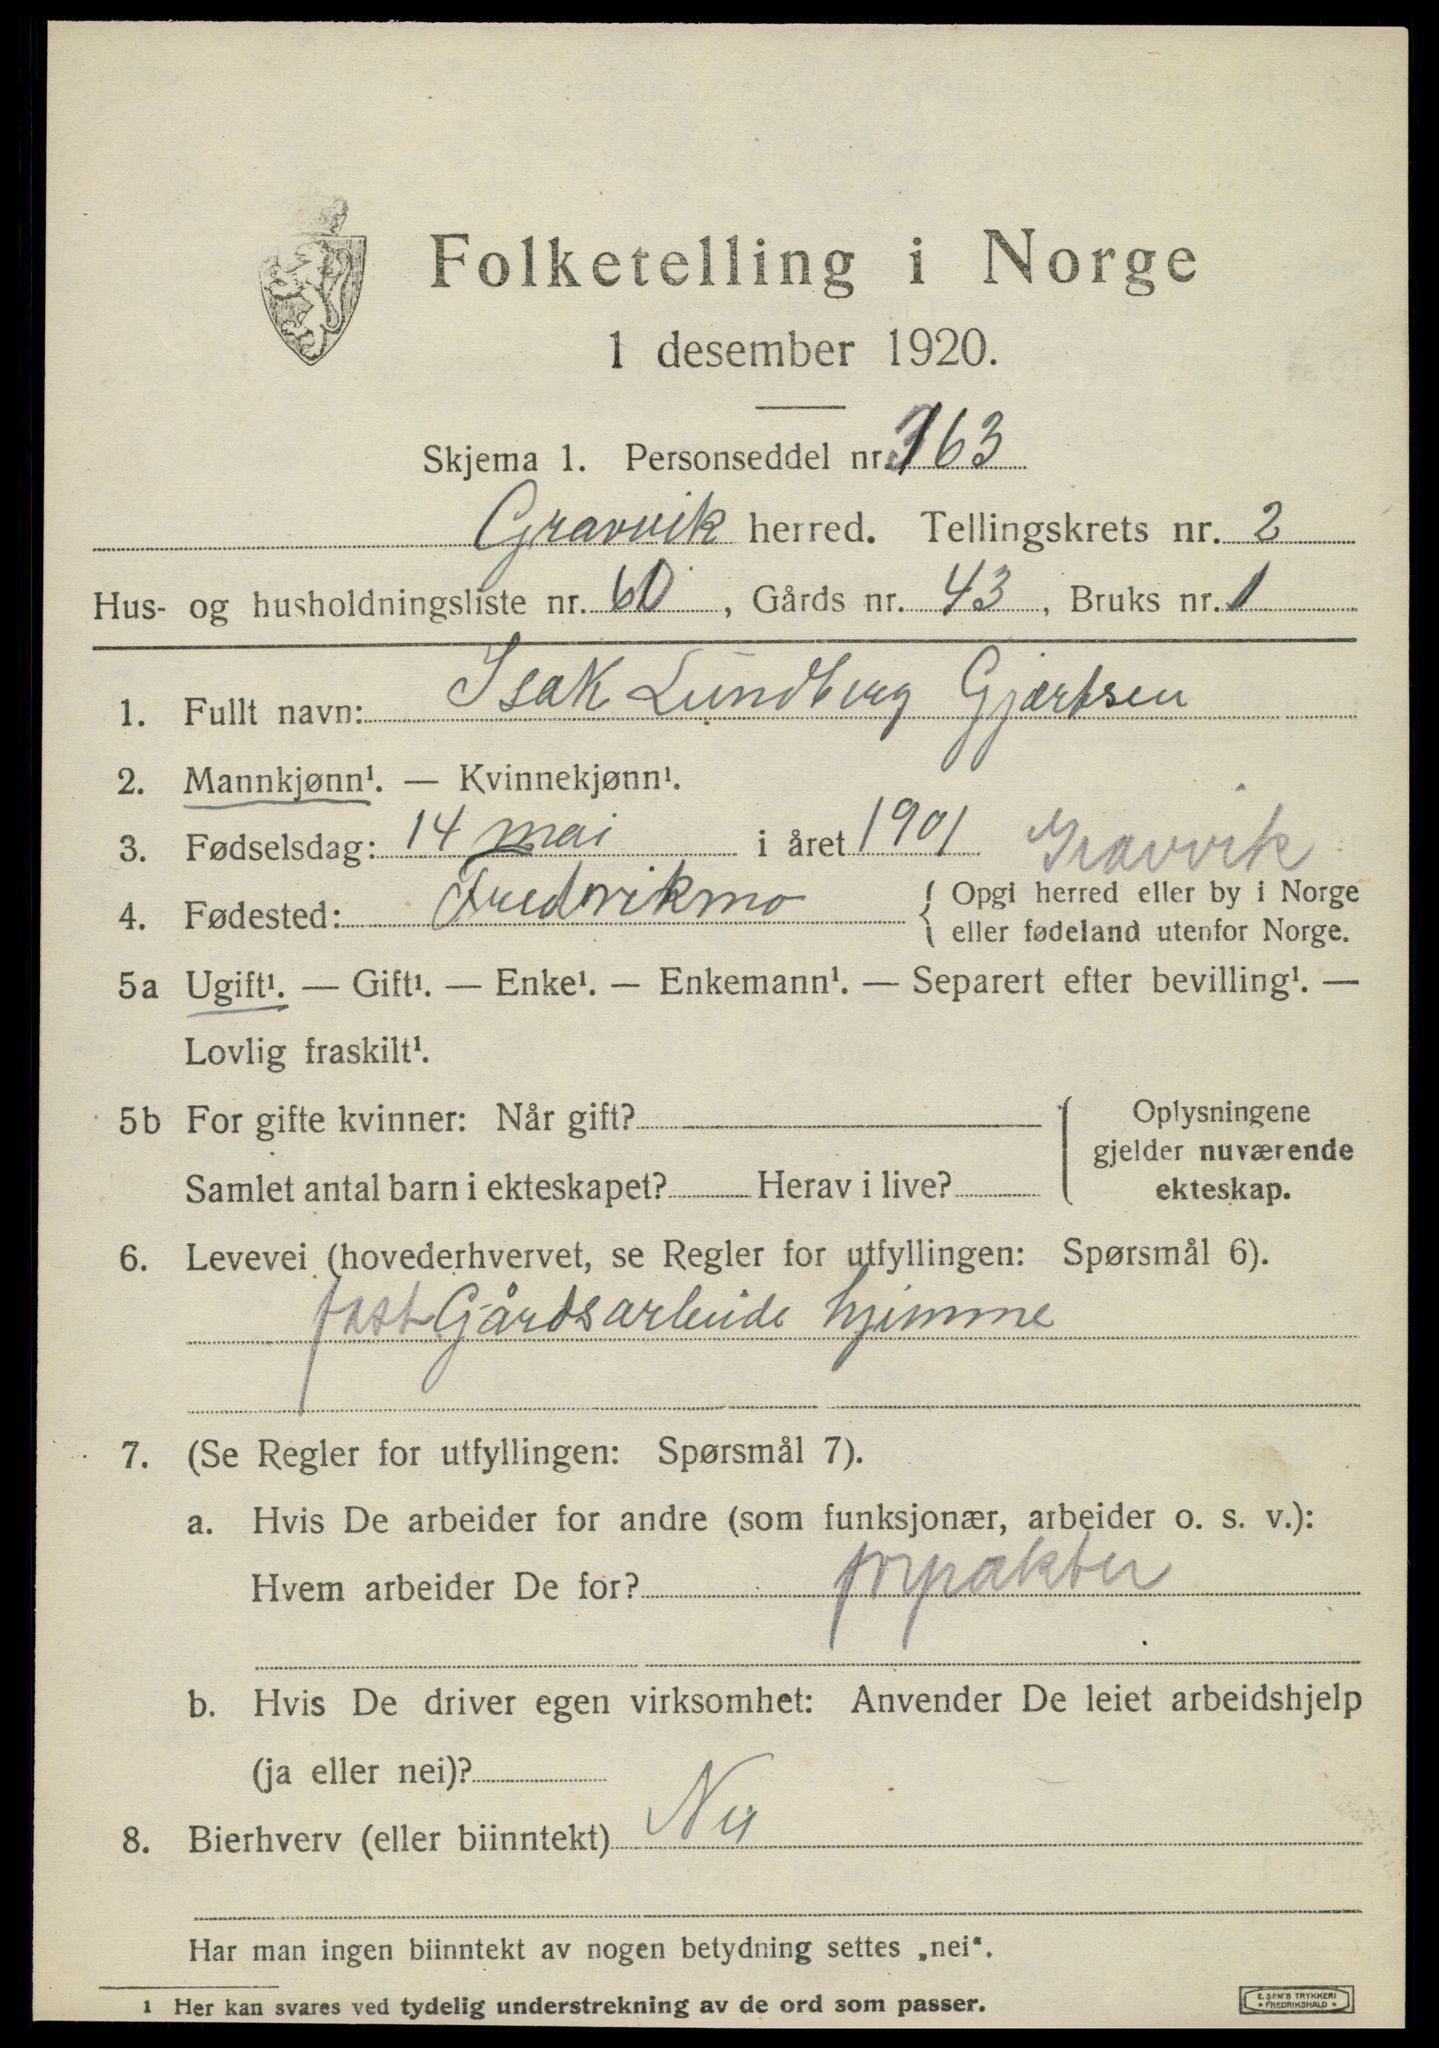 Folketelling i Norge
1 desember 1920.
Skjema 1. Personseddel nr. 363
Gravvik herred. Tellingskrets nr. 2
Hus- og husholdningsliste nr. 60, Gårds nr. 43, Bruks nr. 1
1. Fullt navn: Isak Lundberg Gjærtsen
2. Mannkjønn¹. — Kvinnekjønn¹.
3. Fødselsdag: 14 mai i året 1901 Gravvik
4. Fødested: Fredrikmo { Opgi herred eller by i Norge
eller fødeland utenfor Norge.
5a Ugift¹. — Gift¹. — Enke¹. — Enkemann¹. — Separert efter bevilling¹. —
Lovlig fraskilt¹.
5b For gifte kvinner: Når gift? Oplysningene
gjelder nuværende
Samlet antal barn i ekteskapet? Herav i live? ekteskap.
6. Levevei (hovederhvervet, se Regler for utfyllingen: Spørsmål 6).
fast Gårdsarbeide hjemme
7. (Se Regler for utfyllingen: Spørsmål 7).
a. Hvis De arbeider for andre (som funksjonær, arbeider o. s. v.):
Hvem arbeider De for? forpakter
b. Hvis De driver egen virksomhet: Anvender De leiet arbeidshjelp
(ja eller nei)?
8. Bierhverv (eller biinntekt) Nei
Har man ingen biinntekt av nogen betydning settes „nei".
1 Her kan svares ved tydelig understrekning av de ord som passer.
E. SEM'S TRYKKERI
* FREDRIKSHALD *